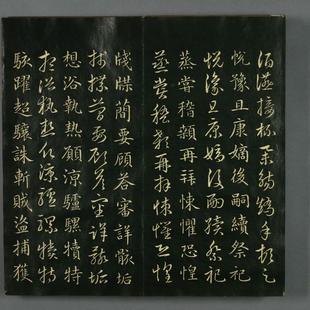 酒讌接杯舉觴矯手頓足
悅豫且康嫡後嗣續祭祀
悅豫且康嫡後嗣續祭祀
蒸嘗稽顙再拜悚懼恐惶
蒸嘗稽顙再拜悚懼恐惶
牋牒簡要顧答審詳骸垢
牋牒簡要顧答審詳骸垢
想浴執熱願涼驢騾犢特
想浴執熱願涼驢騾犢特
駭躍超驤誅斬賊盜捕獲